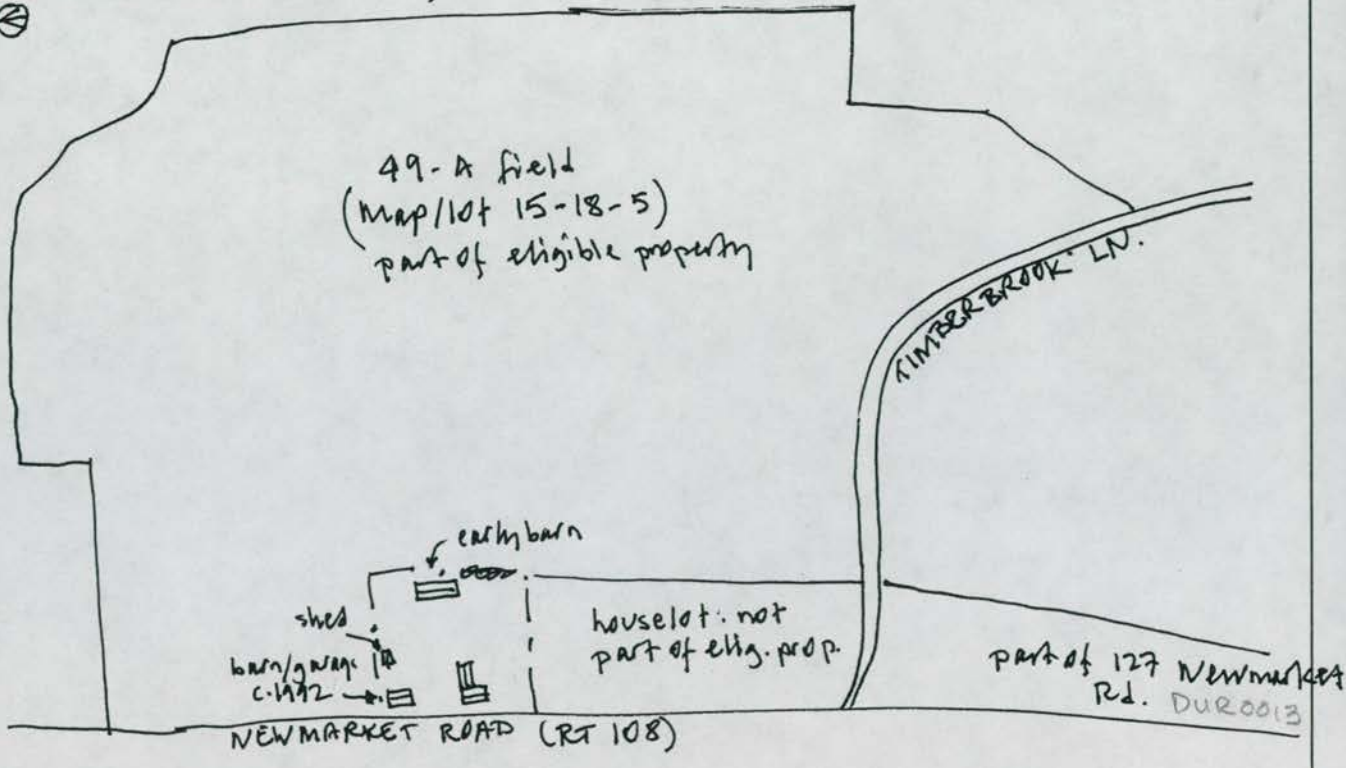 49-A field
(Map/lot 15-18-5)
part of eligible property
TIMBERBROOK LN.
early barn
shed
barn/garage
c.1992
houselot: not
part of elig. prop.
part of 127 Newmarket
Rd.
DUR0013
NEWMARKET ROAD (RT 108)